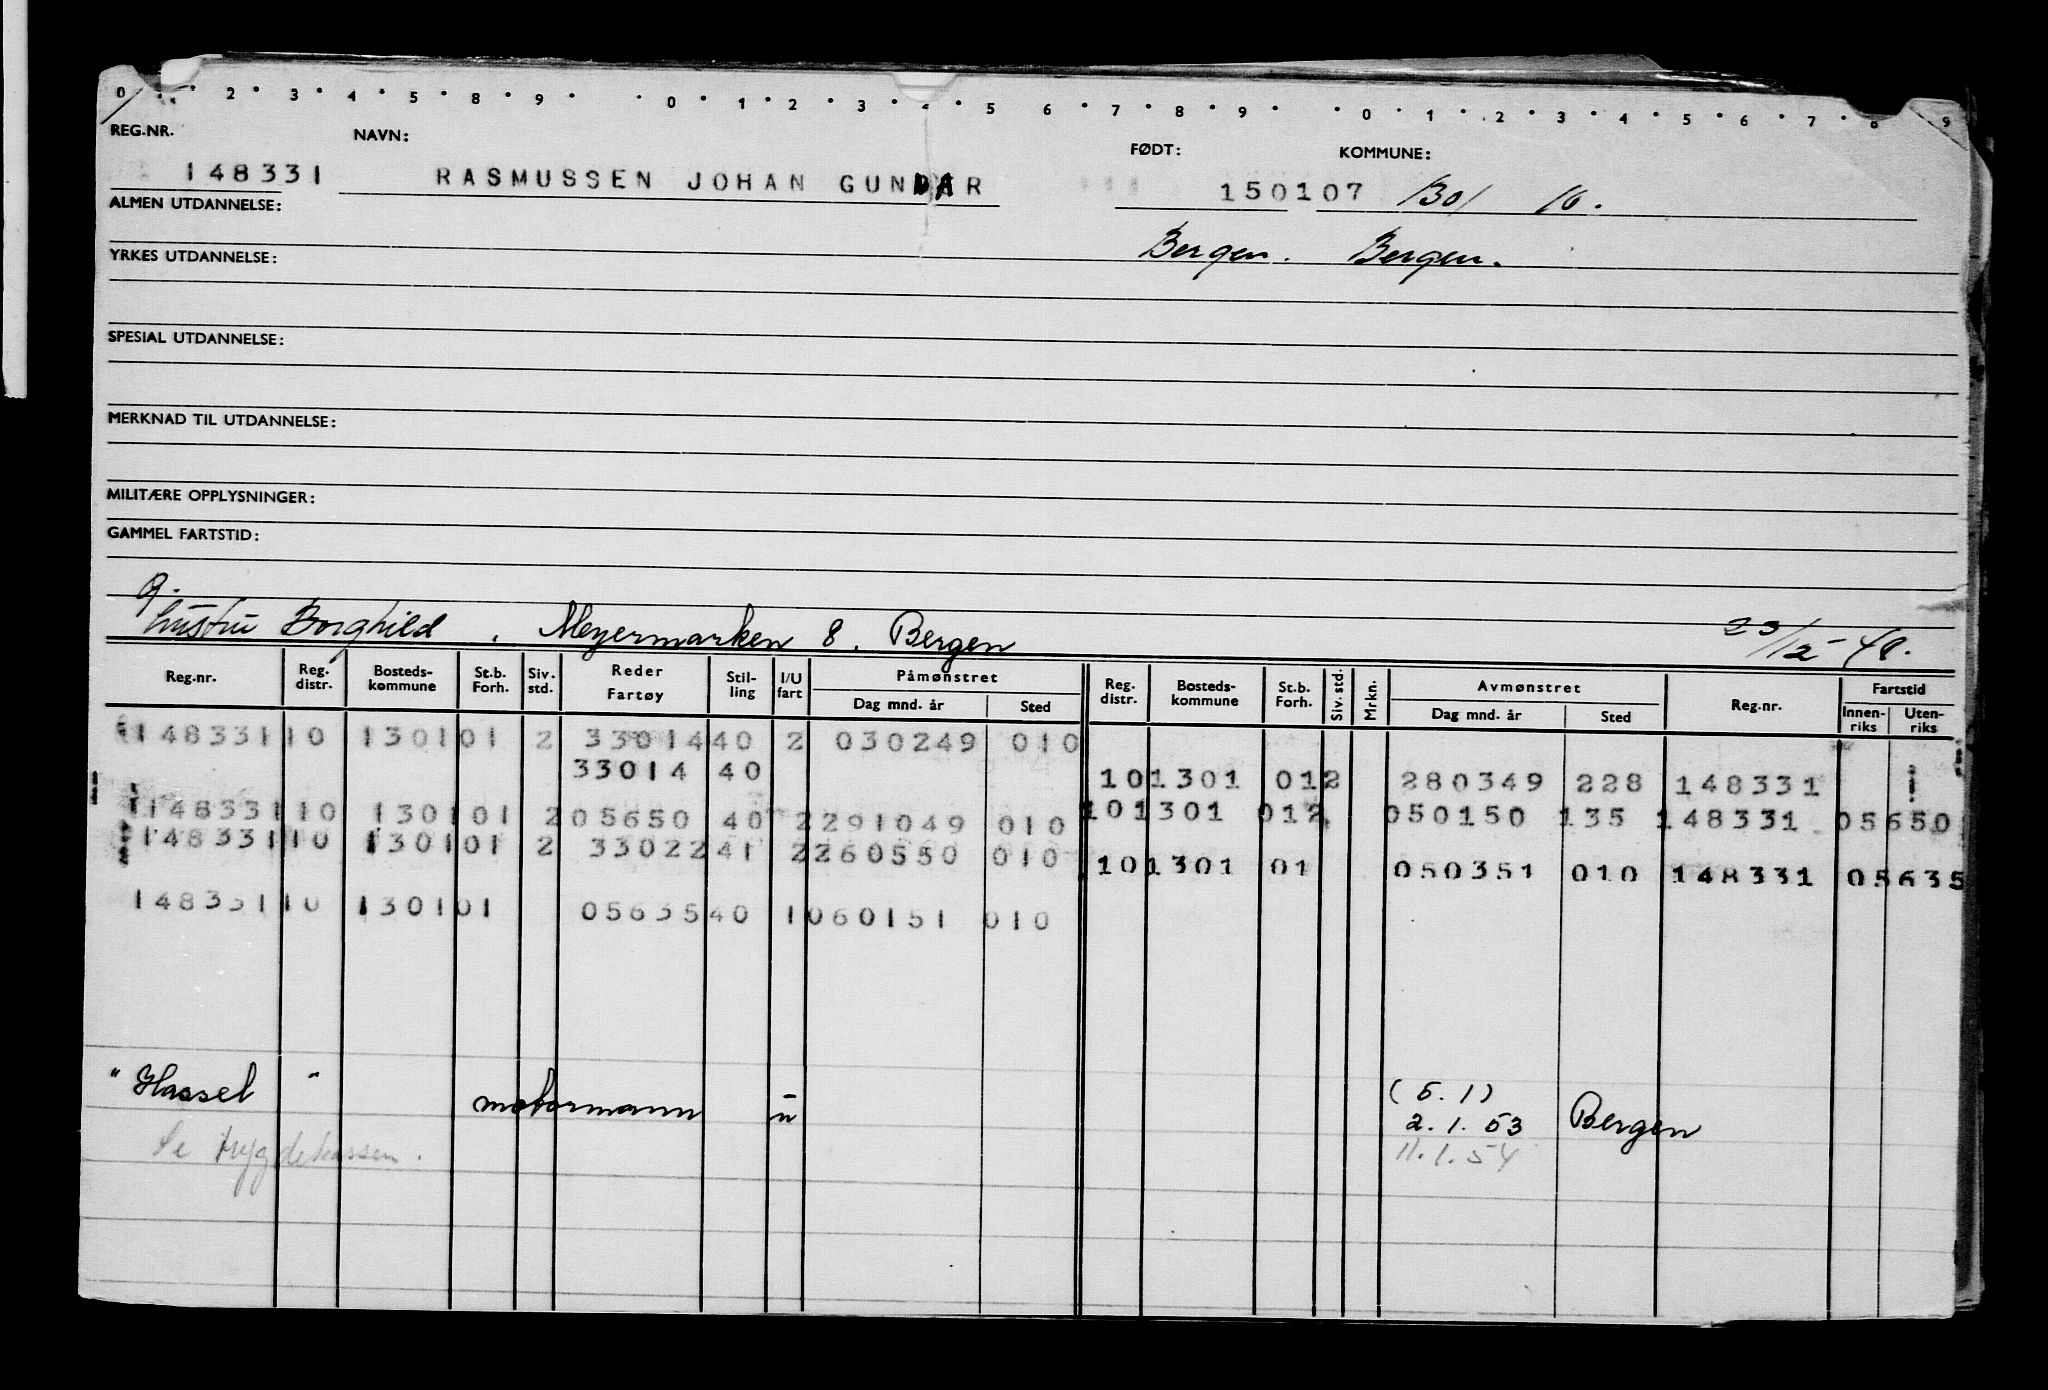 0 2 3 4 5 8 9 0 1 2 3 4 5 6 7 8 9 0 1 2 3 4 5 6 7 8 9
REG.NR. NAVN: FØDT: KOMMUNE:
148331 RASMUSSEN JOHAN GUNDAR 150107 1301 10.
ALMEN UTDANNELSE:
Bergen. Bergen.
YRKES UTDANNELSE:
SPESIAL UTDANNELSE:
MERKNAD TIL UTDANNELSE:
MILITÆRE OPPLYSNINGER:
GAMMEL FARTSTID:
g.
hustru Borghild. Meyermarken 8. Bergen 23/12-49.
Reg.nr. Reg. distr. Bosteds-kommune St.b. Forh. Siv. std. Reder Fartøy Stil-ling I/U fart Påmønstret Dag mnd. år Sted Reg. distr. Bosteds-kommune St.b. Forh. Siv. std. Mrkn. Avmønstret Dag mnd. år Sted Reg.nr. Fartstid Innen-riks Uten-riks
148331 10 1301 01 2 33014 40 2 030249 010
33014 40 10 1301 01 2 280349 228 148331
148331 10 1301 01 2 05650 40 2 291049 010 10 1301 01 2 050150 135 148331 05650
148331 10 1301 01 2 33022 41 2 260550 010 10 1301 01 050351 010 148331 05635
148331 10 1301 01 05635 40 1 060151 010
"Hassel" motormann u (5.1)
2.1.53 Bergen
Se trygdekassen. 11.1.54